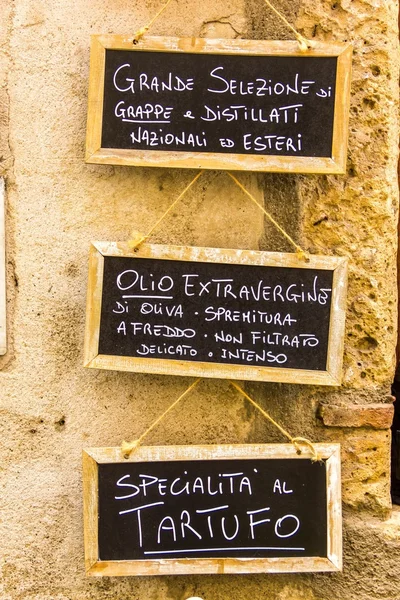 GRANDE SELEZIONE DI
GRAPPE E DISTILLATI
NAZIONALI ED ESTERI
OLIO EXTRAVERGINE
DI OLIVA · SPREMITURA
A FREDDO · NON FILTRATO
DELICATO · INTENSO
SPECIALITÀ AL
TARTUFO